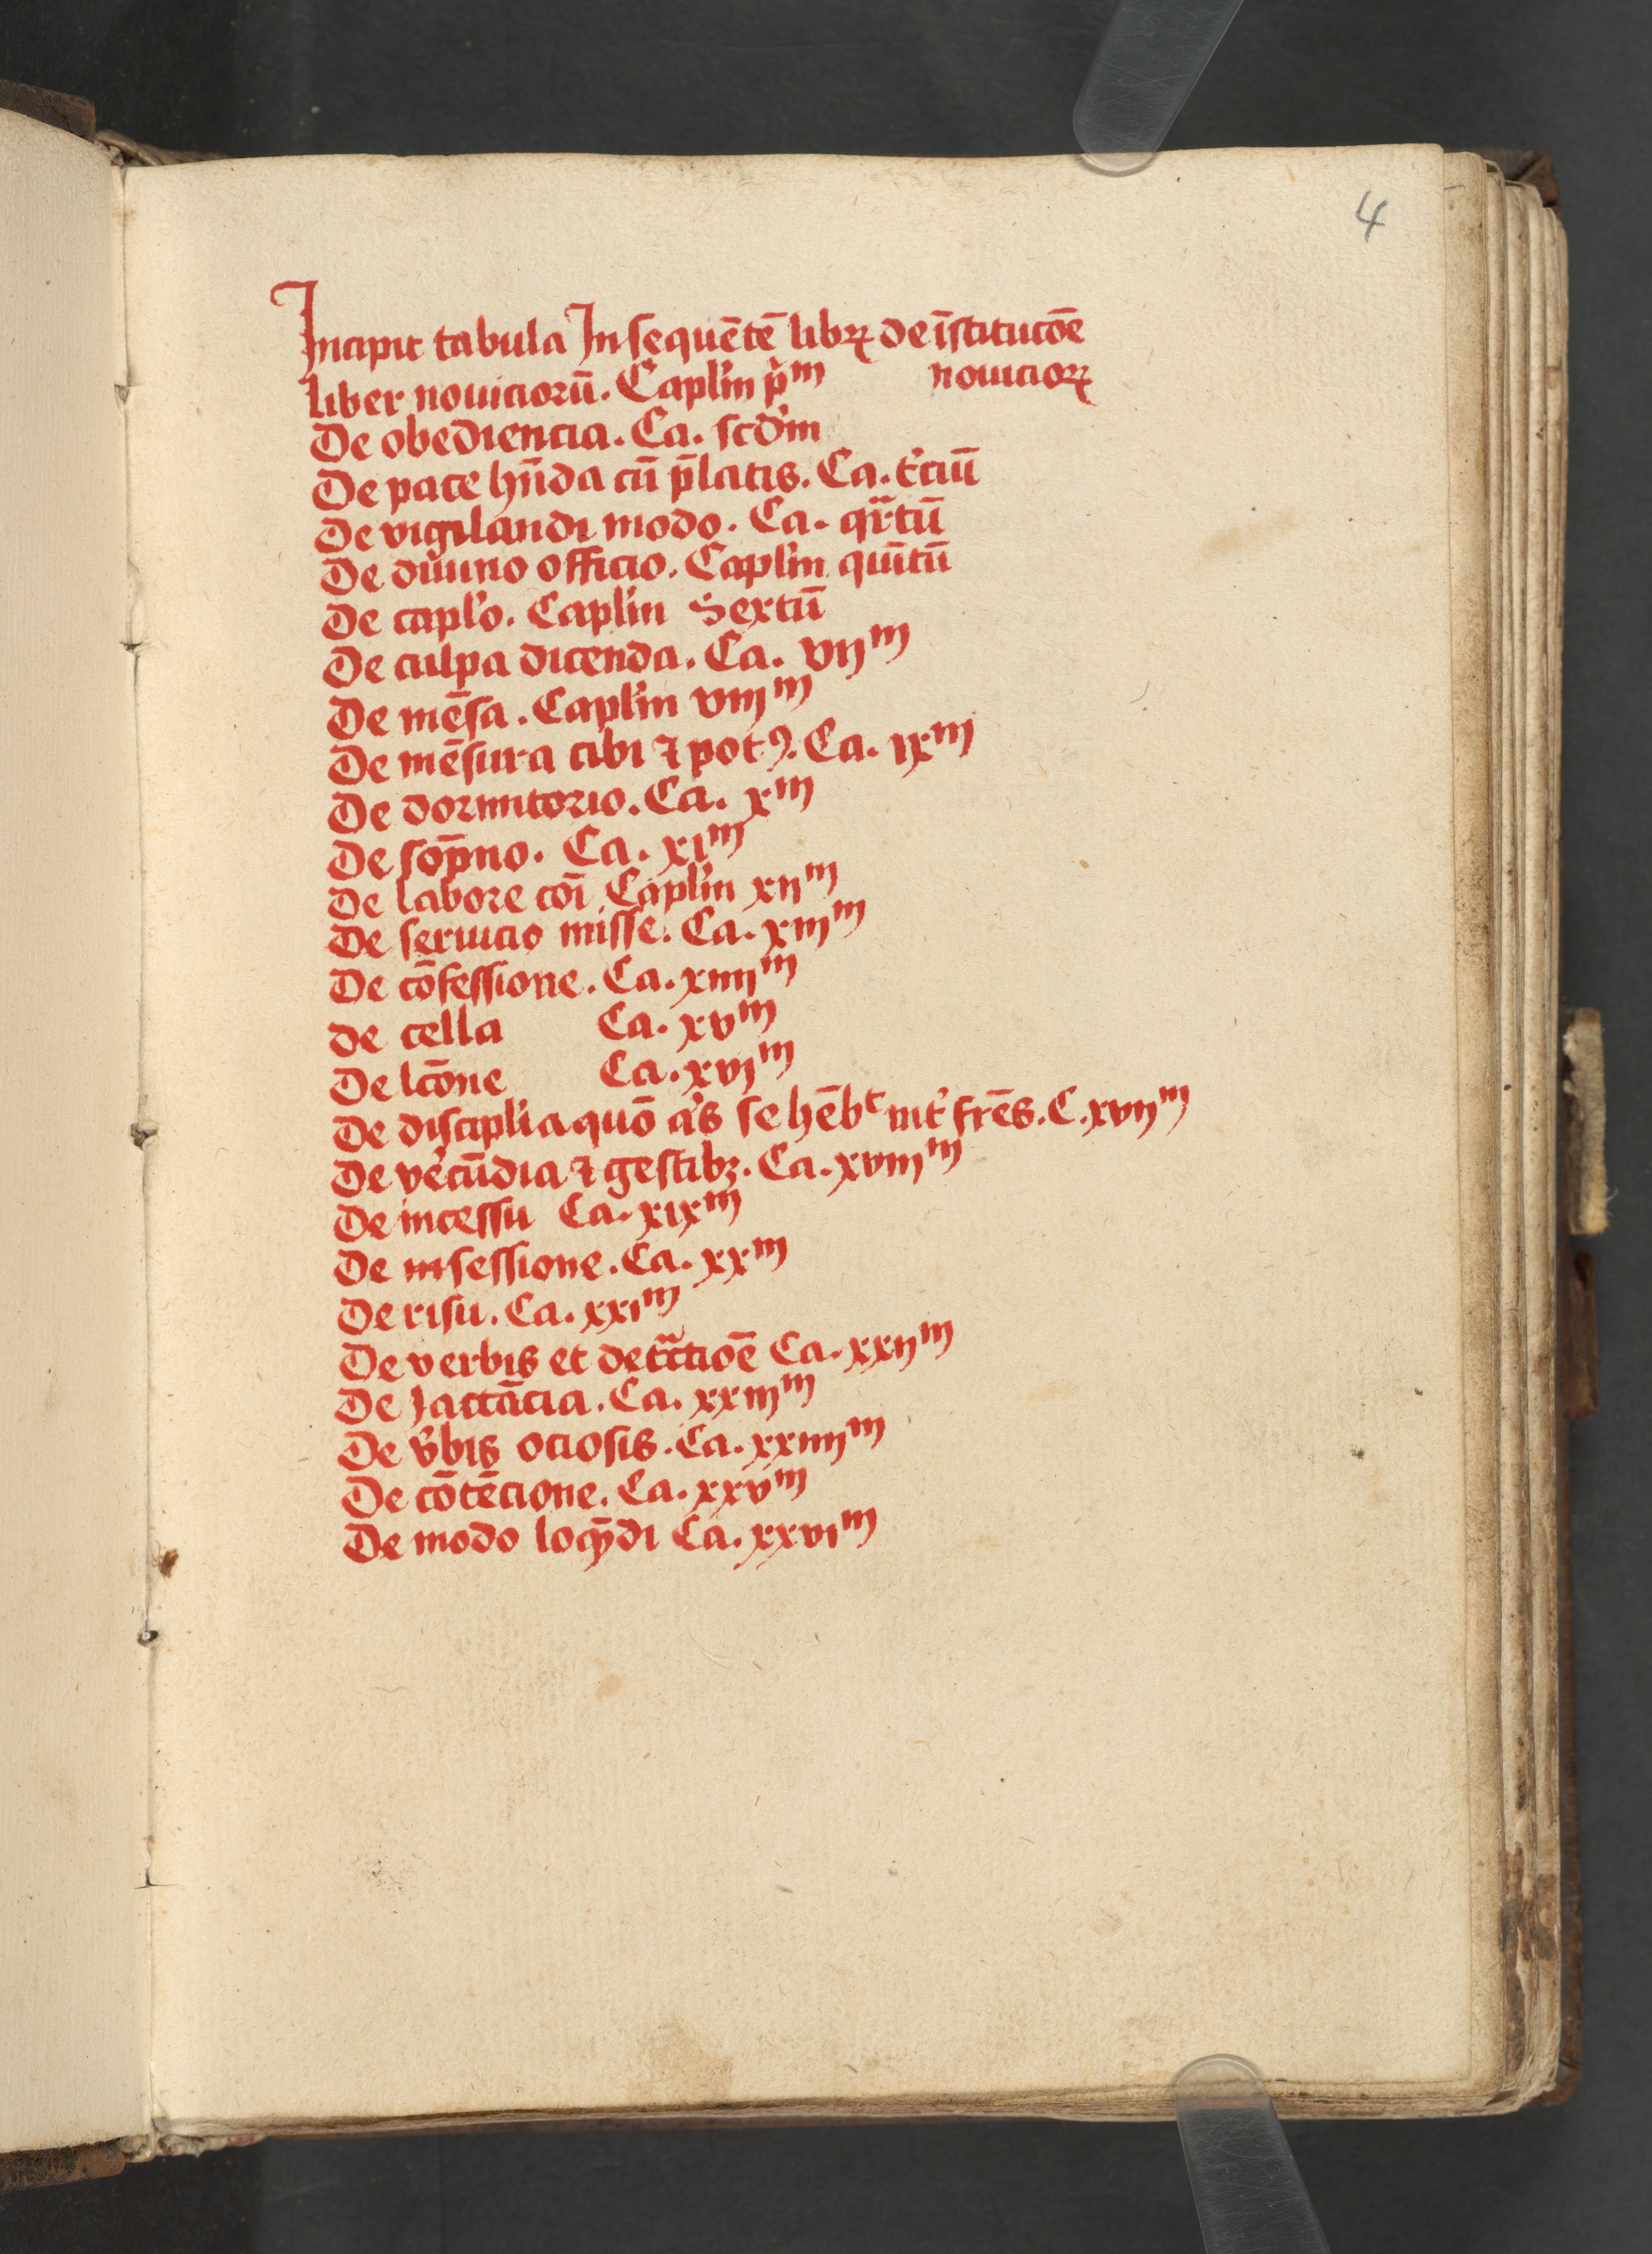 4
Incipit tabula In sequētē libꝝ de īstitucōe
liber nouiciorū. Capl'm p'ᵐ nouicioꝝ
De obediencia. Ca. scd'm
De pace hn̄da cū p̄latis. Ca. t'ciū
De vigilandi modo. Ca. qrtū
De diuino officio. Capl'm quītū
De capl'o. Capl'm Sextū
De culpa dicenda. Ca. vijᵐ
De mēsa. Capl'm viijᵐ
De mēsura cibi ⁊ potꝯ. Ca. ixᵐ
De dormitorio. Ca. xᵐ
De sop̄no. Ca. xiᵐ
De labore cōi Capl'm xijᵐ
De seruicio misse. Ca. xiijᵐ
De cōfessione. Ca. xiiijᵐ
de cella Ca. xvᵐ
De lcōne Ca. xvjᵐ
De discipl'ia quō q's se hēbᵗ int' frēs. C. xvijᵐ
De v'ecūdia ⁊ gestibꝫ. Ca. xviijᵐ
De incessu Ca. xixᵐ
De insessione. Ca. xxᵐ
De risu. Ca. xxiᵐ
De verbis et detͣctioē Ca. xxijᵐ
De Jactācia. Ca. xxiijᵐ
De v'bis ociosis. Ca. xxiiijᵐ
De cōtēcione. Ca. xxvᵐ
De modo loq̄di Ca. xxviᵐ